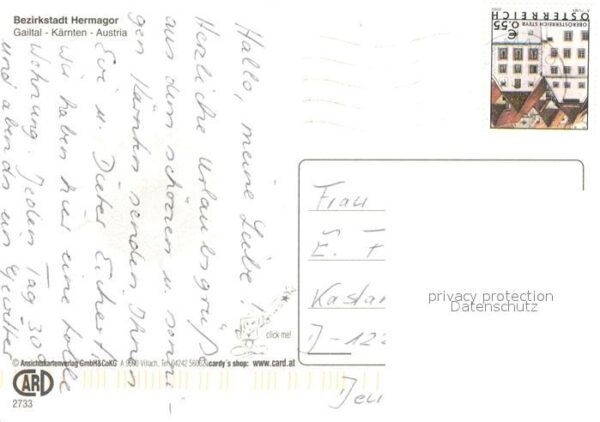 Bezirkstadt Hermagor
Gailtal - Kärnten - Austria
Hallo, meine Liebe!
Herzliche Urlaubsgrüße
aus dem schönen u. sonni-
gen Kärnten senden Ihnen
Evi u. Dieter Eichert
wir haben hier eine tolle
Wohnung. Jeden Tag 30°
und abends ein Gewitter
ÖSTERREICH
OBERÖSTERREICH STEYR
€ 0,55
Frau
E. F
Kastan
D-122
privacy protection
Datenschutz
click me!
© Ansichtskartenverlag GmbH&CoKG A 9500 Villach, Tel. 04242 cardy's shop: www.card.at
CARD
2733